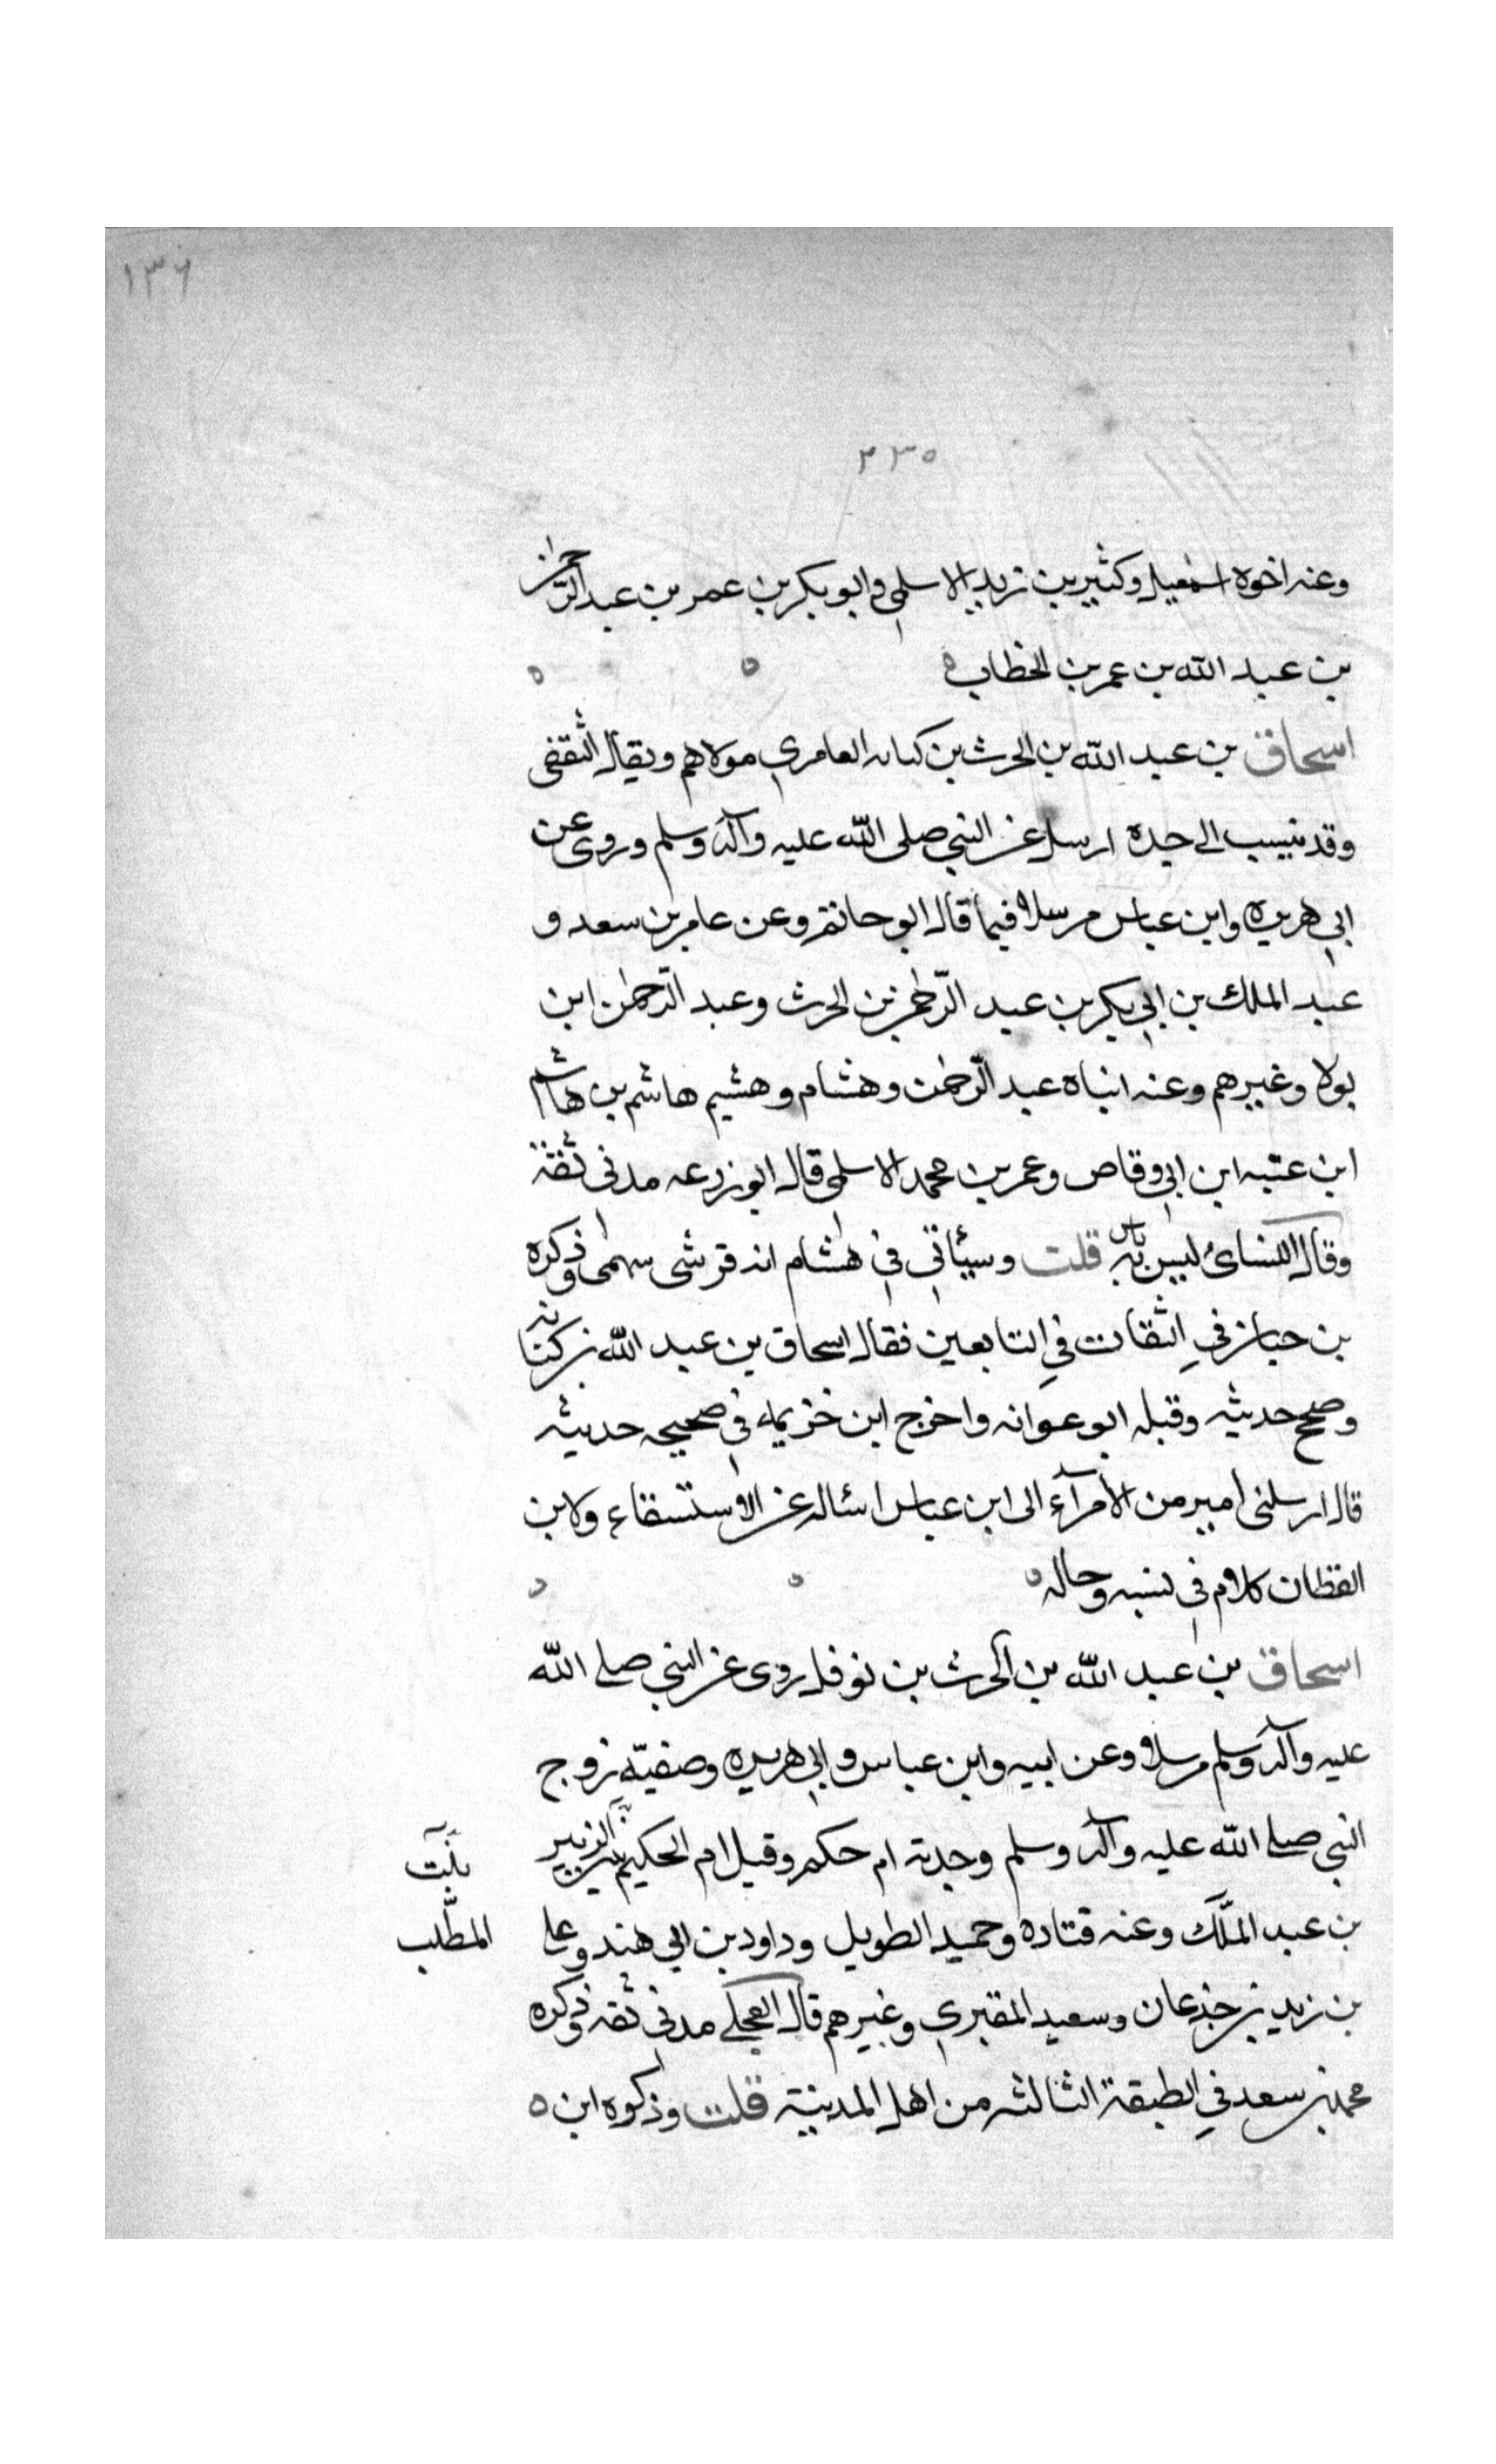 ١٣٦
٢٣٥
وعنه اخوه اسمعيل وكثير بن زيد الاسلمي وابو بكر بن عمر بن عبد الرحمن
بن عبد الله بن عمر بن الخطاب ه ه ه
اسحاق بن عبد الله بن الحرث بن كنانه العامري مولاهم ويقال الثقفى
وقد ينسب الى جده ارسل عن النبي صلى الله عليه وآله وسلم وروى عن
ابي هريره وابن عباس مرسلا فيما قال ابو حاتم وعن عامر بن سعد و
عبد الملك بن ابي بكر بن عبد الرحمن بن الحرث وعبد الرحمن ابن
بولا وغيرهم وعنه ابناه عبد الرحمن وهشام وهشيم هاشم بن هاشم
ابن عتبه ابن ابي وقاص وعمر بن محمد الاسلمي قال ابو زرعه مدنى ثقة
وقال النسائ ليس به باس قلت وسيئاتي في هشام انه قرشى سهمى وذكره
بن حبان في الثقات في التابعين فقال اسحاق بن عبد الله بن كنانه
وصحح حديثه وقبله ابو عوانه واخرج ابن خزيمه في صحيحه حديثه
قال ارسلنى امير من الأمرآء الى ابن عباس اسئاله عن الاستسقاء ولابن
القطان كلام في نسبه وحاله ه ه ه
اسحاق بن عبد الله بن الحرث بن نوفل روى عن النبي صلى الله
عليه وآله وسلم مرسلا وعن ابيه وابن عباس وابي هريره وصفيّه زوج
النبي صلى الله عليه وآله وسلم وجدته ام حكم وقيل ام الحكيم بن الزبير
بنت
بن عبد الملك وعنه قتاده وحميد الطويل وداود بن ابي هند وعلى
المطّلب
بن زيد بن جذعان وسعيد المقبري وغيرهم قال العجلي مدني ثقه وذكره
محمد بن سعد في الطبقة الثالثه من اهل المدينة قلت وذكره ابن ه